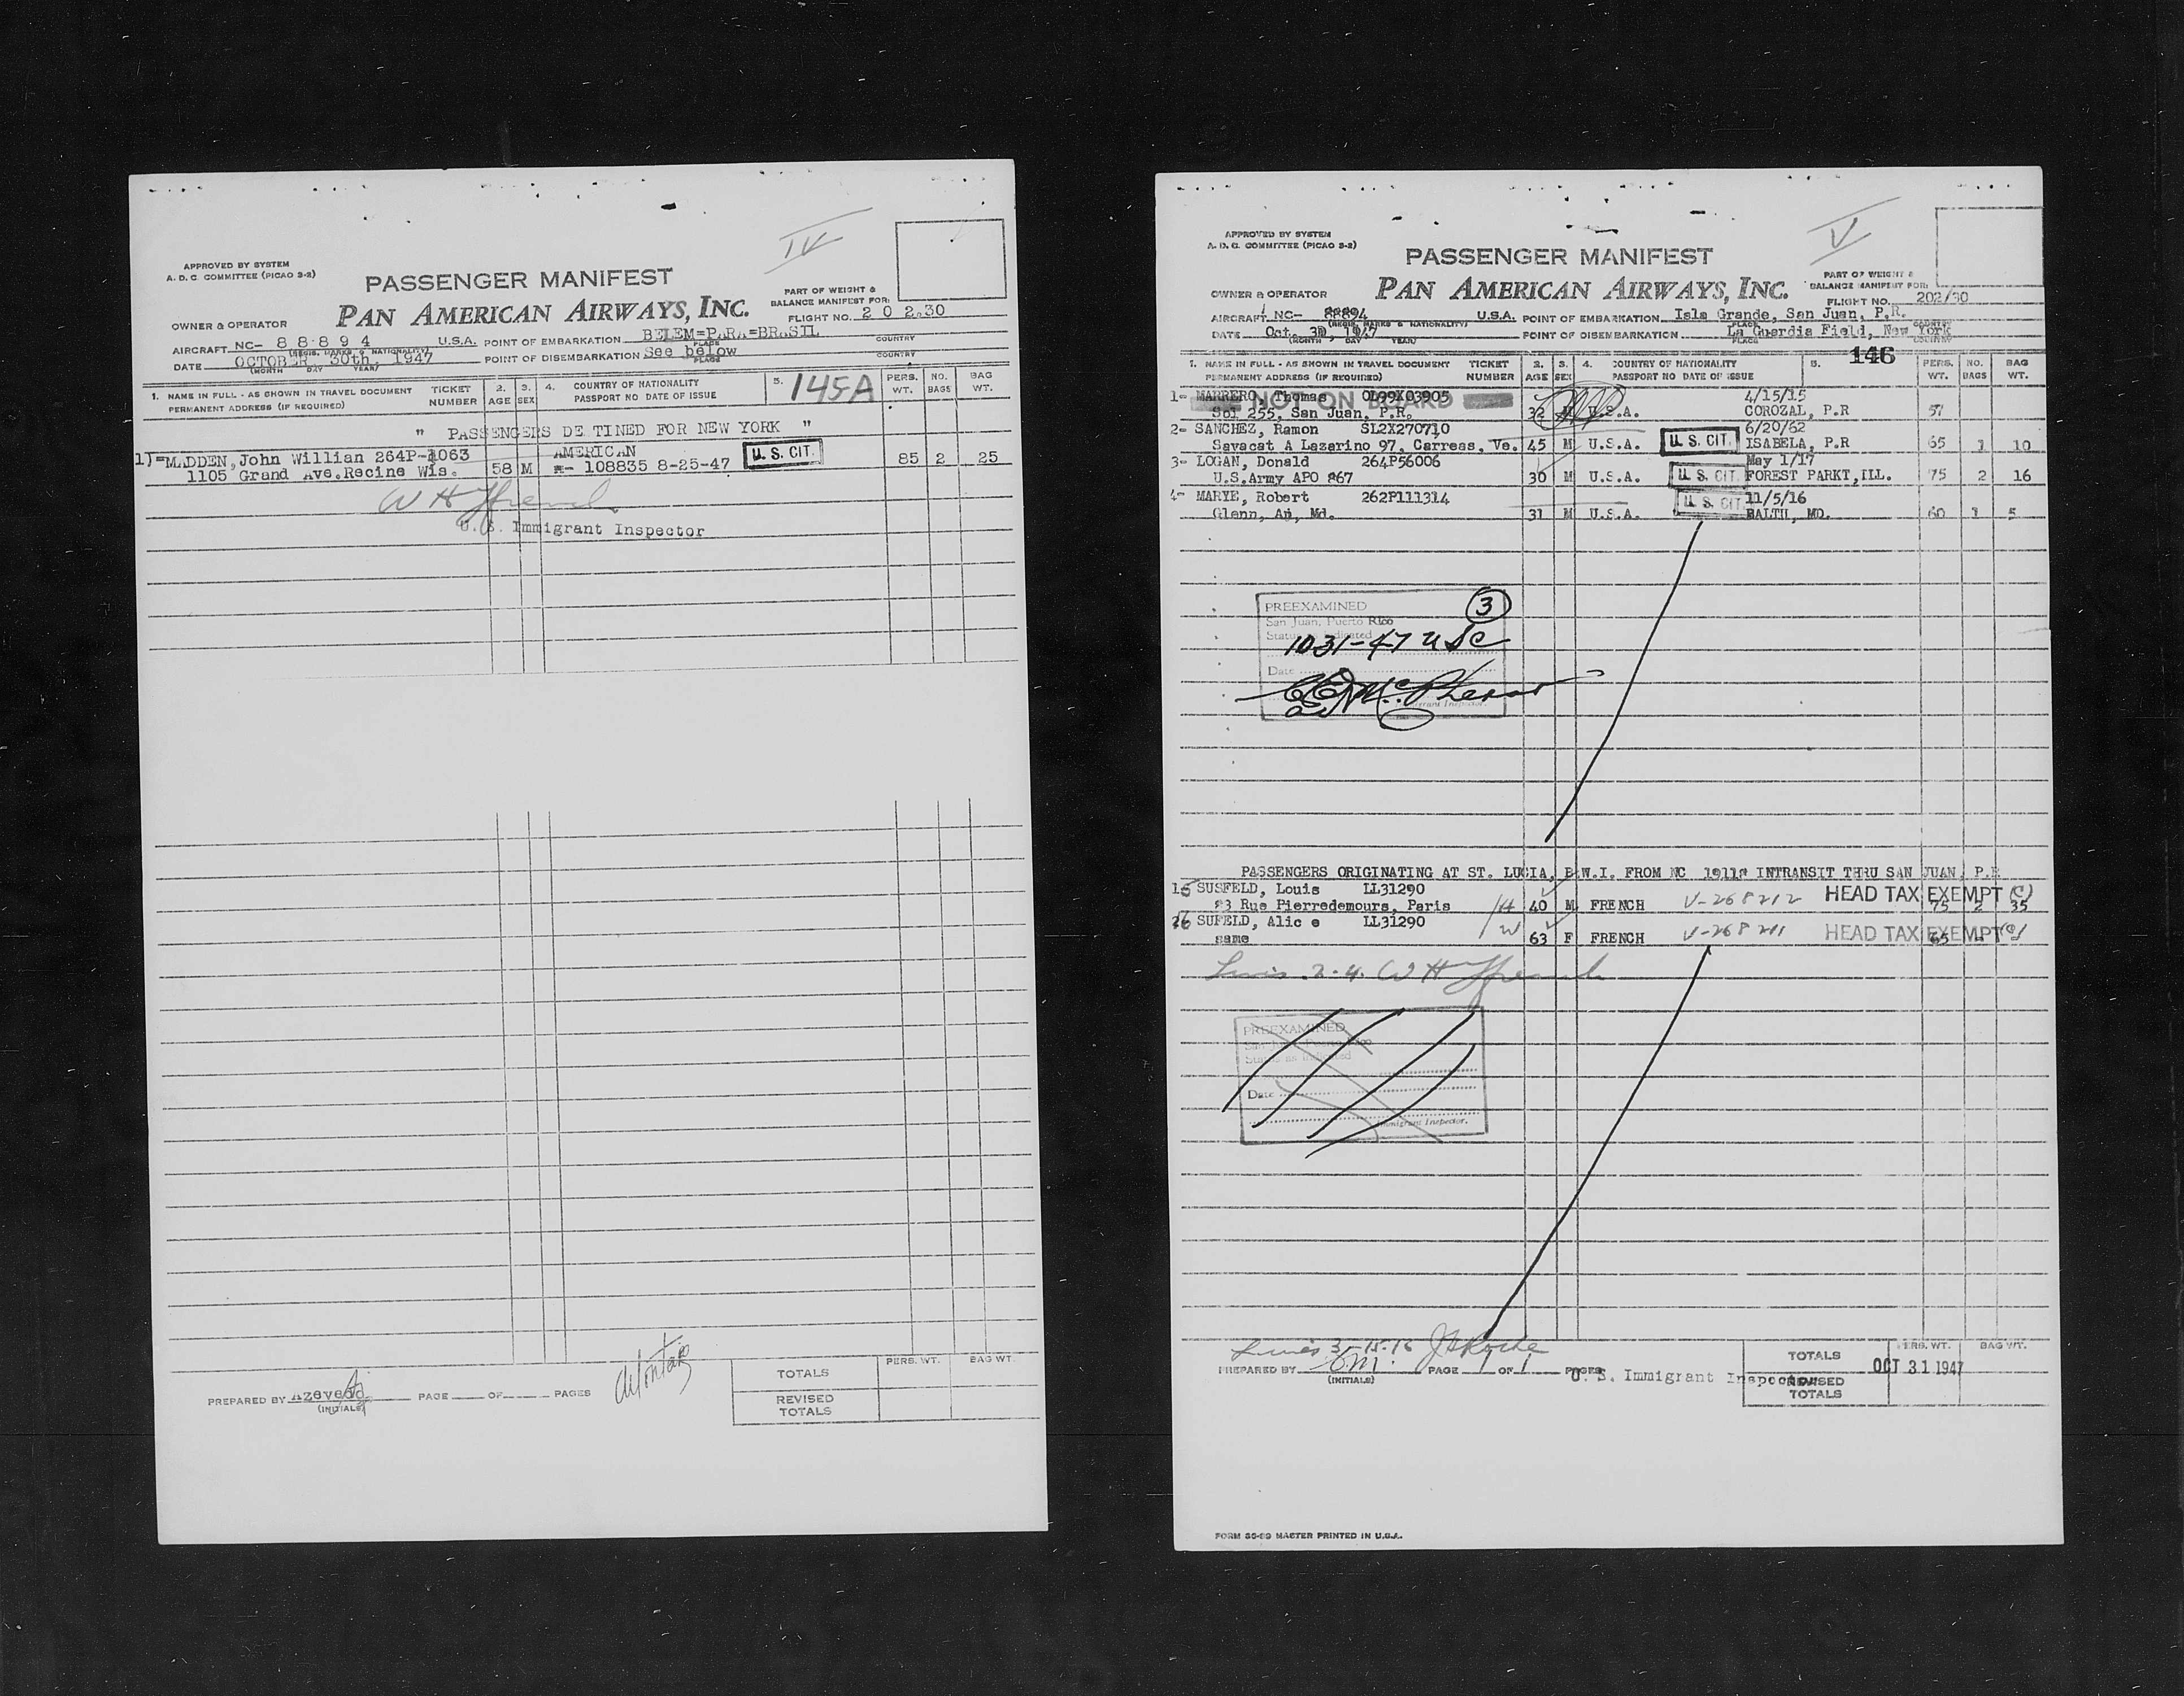 IV
APPROVED BY SYSTEM
A. D. C. COMMITTEE (PICAO 3-2)
PASSENGER MANIFEST
PART OF WEIGHT &
BALANCE MANIFEST FOR:
OWNER & OPERATOR
PAN AMERICAN AIRWAYS, INC.
FLIGHT NO. 2 0 2.30
AIRCRAFT NC- 8 8 8 9 4 U.S.A. POINT OF EMBARKATION BELEM=PARA=BRASIL
(REGIS. MARKS & NATIONALITY) PLACE COUNTRY
DATE OCTOBER 30th. 1947 POINT OF DISEMBARKATION See below
(MONTH DAY YEAR) PLACE COUNTRY
1. NAME IN FULL - AS SHOWN IN TRAVEL DOCUMENT TICKET 2. 3. 4. COUNTRY OF NATIONALITY 5. 145A PERS. NO. BAG
PERMANENT ADDRESS (IF REQUIRED) NUMBER AGE SEX PASSPORT NO DATE OF ISSUE WT. BAGS WT.
" PASSENGERS DE TINED FOR NEW YORK "
1)=MADDEN,John Willian 264P-1063 AMERICAN U. S. CIT.
1105 Grand Ave.Recine Wis. 58 M 108835 8-25-47 85 2 25
U. S. Immigrant Inspector
PREPARED BY Azevedo PAGE OF PAGES
(INITIALS)
TOTALS PERS. WT. BAG WT.
REVISED
TOTALS
V
APPROVED BY SYSTEM
A. D. C. COMMITTEE (PICAO 3-2)
PASSENGER MANIFEST
PART OF WEIGHT &
BALANCE MANIFEST FOR:
OWNER & OPERATOR
PAN AMERICAN AIRWAYS, INC.
FLIGHT NO. 202/30
AIRCRAFT NC- 88894 U.S.A. POINT OF EMBARKATION Isla Grande, San Juan, P.R.
(REGIS. MARKS & NATIONALITY) PLACE COUNTRY
DATE Oct. 30, 1947 POINT OF DISEMBARKATION La Guardia Field, New York
(MONTH DAY YEAR) PLACE COUNTRY
146
1. NAME IN FULL - AS SHOWN IN TRAVEL DOCUMENT TICKET 2. 3. 4. COUNTRY OF NATIONALITY 5. PERS. NO. BAG
PERMANENT ADDRESS (IF REQUIRED) NUMBER AGE SEX PASSPORT NO DATE OF ISSUE WT. BAGS WT.
1- MARRERO, Thomas OL99X03905 4/15/15
NOT ON BOARD
Sol 255, San Juan, P.R. 32 M U.S.A. COROZAL, P.R 57
2- SANCHEZ, Ramon SL2X270710 6/20/62
Savacat A Lazarino 97, Carreas, Ve. 45 M U.S.A. U. S. CIT. ISABELA, P.R 65 1 10
3- LOGAN, Donald 264P56006 May 1/17
U.S.Army APO 867 30 M U.S.A. U. S. CIT. FOREST PARKT,ILL. 75 2 16
4- MARYE, Robert 262P111314 11/5/16
Glenn, An, Md. 31 M U.S.A. U. S. CIT. BALTH, MD. 60 1 5
PREEXAMINED 3
San Juan, Puerto Rico
Status as Indicated
1031-47 USC
Date
Immigrant Inspector.
PASSENGERS ORIGINATING AT ST. LUCIA, B.W.I. FROM NC 19118 INTRANSIT THRU SAN JUAN, P.R
15 SUSFELD, Louis LL31290
83 Rue Pierredemours, Paris 40 M FRENCH V-268212 HEAD TAX EXEMPT (C) 75 2 35
16 SUFELD, Alic e LL31290
same 63 F FRENCH V-268211 HEAD TAX EXEMPT (C) 65
PREEXAMINED
San Juan, Puerto Rico
Status as Indicated
Date
Immigrant Inspector.
Lines 3-15-16
PREPARED BY PAGE 1 OF 1 PAGES
(INITIALS)
U. S. Immigrant Inspector
TOTALS PERS. WT. BAG WT.
OCT 31 1947
REVISED
TOTALS
FORM 36-89 MASTER PRINTED IN U.S.A.